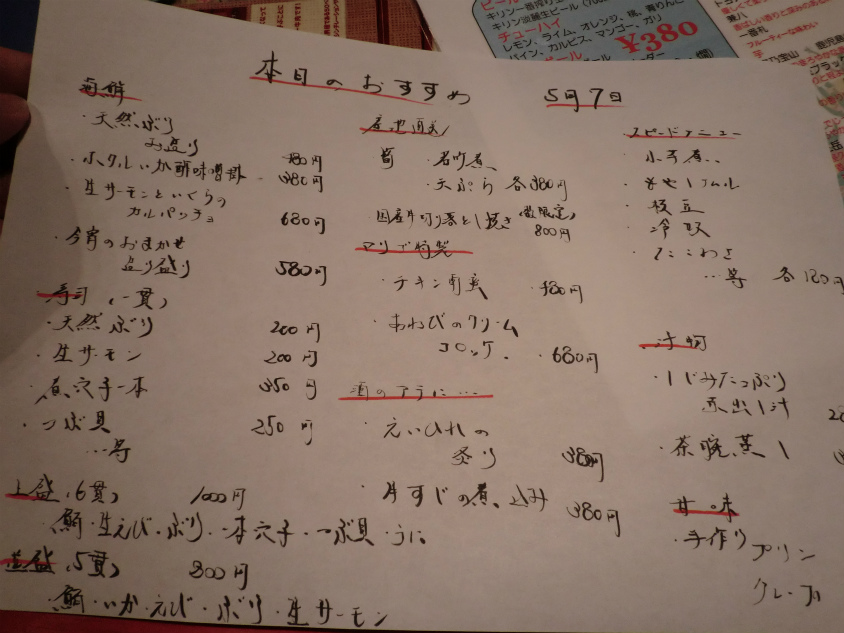 本日のおすすめ
5月7日
海鮮
・天然ぶり
お造り 780円
・ホタルいか酢味噌 380円
・生サーモンといくらの
カルパッチョ 680円
・今宵のおまかせ
造り盛り 580円
寿司(一貫)
・天然ぶり 200円
・生サーモン 200円
・煮穴子一本 350円
・つぶ貝 250円
…等
上盛(6貫) 1000円
・生えび・ぶり・一本穴子・つぶ貝・うに
(5貫) 800円
・いか・えび・ぶり・生サーモン
産地直送
筍
・天ぷら 各380円
・国産牛切り落とし焼き(数限定)
800円
・チキン南蛮
・あわびのクリーム
コロッケ ・680円
酒のアテに…
・えいひれの
炙り 380円
・牛すじの煮込み 380円
スピードメニュー
・枝豆
・冷奴
・たこわさ
…等 各180円
汁物
・しじみたっぷり
赤出し汁
・茶碗蒸し
甘味
・手作りプリン
クレープ
チューハイ
レモン、ライム、オレンジ、桃、青りんご
パイン、カルピス、マンゴー、ガリ
¥380